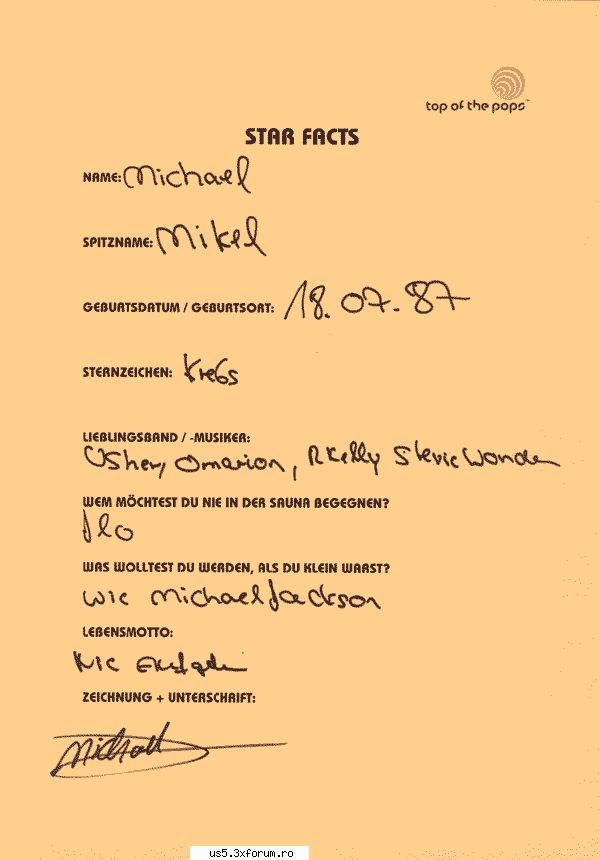 top of the pops™
STAR FACTS
NAME: Michael
SPITZNAME: Mikel
GEBURTSDATUM / GEBURTSORT: 18.07.87
STERNZEICHEN: Krebs
LIEBLINGSBAND / -MUSIKER:
Usher, Omarion, R Kelly Stevie Wonder
WEM MÖCHTEST DU NIE IN DER SAUNA BEGEGNEN?
WAS WOLLTEST DU WERDEN, ALS DU KLEIN WARST?
wie Michael Jackson
LEBENSMOTTO:
Nie
ZEICHNUNG + UNTERSCHRIFT:
Michael
us5.3xforum.ro